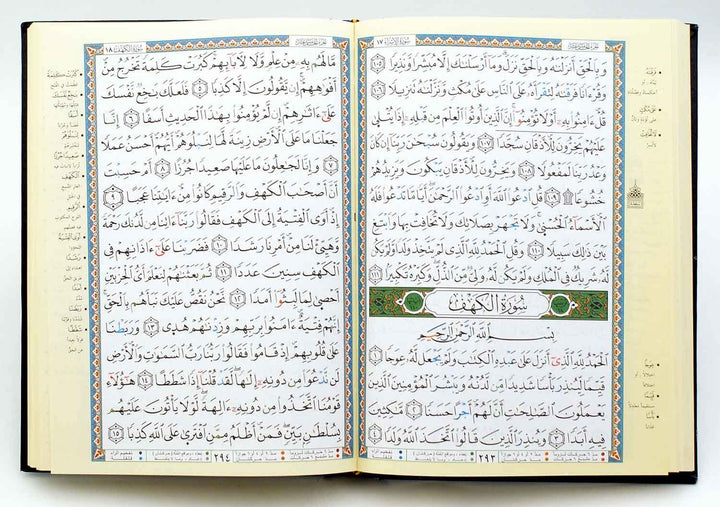 سُورَةُ الإِسْرَاءِ ١٧
وَبِالْحَقِّ أَنزَلْنَاهُ وَبِالْحَقِّ نَزَلَ وَمَا أَرْسَلْنَاكَ إِلَّا مُبَشِّرًا وَنَذِيرًا ١٠٥
وَقُرْءَانًا فَرَقْنَاهُ لِتَقْرَأَهُ عَلَى النَّاسِ عَلَى مُكْثٍ وَنَزَّلْنَاهُ تَنزِيلًا ١٠٦
قُلْ ءَامِنُوا بِهِ أَوْ لَا تُؤْمِنُوا إِنَّ الَّذِينَ أُوتُوا الْعِلْمَ مِن قَبْلِهِ إِذَا يُتْلَى
عَلَيْهِمْ يَخِرُّونَ لِلْأَذْقَانِ سُجَّدًا ١٠٧ وَيَقُولُونَ سُبْحَانَ رَبِّنَا إِن كَانَ
وَعْدُ رَبِّنَا لَمَفْعُولًا ١٠٨ وَيَخِرُّونَ لِلْأَذْقَانِ يَبْكُونَ وَيَزِيدُهُمْ
خُشُوعًا ١٠٩ قُلِ ادْعُوا اللَّهَ أَوِ ادْعُوا الرَّحْمَنَ أَيًّا مَا تَدْعُوا فَلَهُ
الْأَسْمَاءُ الْحُسْنَى وَلَا تَجْهَرْ بِصَلَاتِكَ وَلَا تُخَافِتْ بِهَا وَابْتَغِ
بَيْنَ ذَلِكَ سَبِيلًا ١١٠ وَقُلِ الْحَمْدُ لِلَّهِ الَّذِي لَمْ يَتَّخِذْ وَلَدًا وَلَمْ يَكُن
لَّهُ شَرِيكٌ فِي الْمُلْكِ وَلَمْ يَكُن لَّهُ وَلِيٌّ مِّنَ الذُّلِّ وَكَبِّرْهُ تَكْبِيرًا ١١١
سُورَةُ الكَهْفِ
بِسْمِ اللَّهِ الرَّحْمَنِ الرَّحِيمِ
الْحَمْدُ لِلَّهِ الَّذِي أَنزَلَ عَلَى عَبْدِهِ الْكِتَابَ وَلَمْ يَجْعَل لَّهُ عِوَجًا ١
قَيِّمًا لِّيُنذِرَ بَأْسًا شَدِيدًا مِّن لَّدُنْهُ وَيُبَشِّرَ الْمُؤْمِنِينَ الَّذِينَ
يَعْمَلُونَ الصَّالِحَاتِ أَنَّ لَهُمْ أَجْرًا حَسَنًا ٢ مَّاكِثِينَ
فِيهِ أَبَدًا ٣ وَيُنذِرَ الَّذِينَ قَالُوا اتَّخَذَ اللَّهُ وَلَدًا ٤
٢٩٣
سُورَةُ الكَهْفِ ١٨
مَّا لَهُم بِهِ مِنْ عِلْمٍ وَلَا لِآبَائِهِمْ كَبُرَتْ كَلِمَةً تَخْرُجُ مِنْ
أَفْوَاهِهِمْ إِن يَقُولُونَ إِلَّا كَذِبًا ٥ فَلَعَلَّكَ بَاخِعٌ نَّفْسَكَ
عَلَى ءَاثَارِهِمْ إِن لَّمْ يُؤْمِنُوا بِهَذَا الْحَدِيثِ أَسَفًا ٦ إِنَّا
جَعَلْنَا مَا عَلَى الْأَرْضِ زِينَةً لَّهَا لِنَبْلُوَهُمْ أَيُّهُمْ أَحْسَنُ عَمَلًا
٧ وَإِنَّا لَجَاعِلُونَ مَا عَلَيْهَا صَعِيدًا جُرُزًا ٨ أَمْ حَسِبْتَ
أَنَّ أَصْحَابَ الْكَهْفِ وَالرَّقِيمِ كَانُوا مِنْ ءَايَاتِنَا عَجَبًا ٩
إِذْ أَوَى الْفِتْيَةُ إِلَى الْكَهْفِ فَقَالُوا رَبَّنَا ءَاتِنَا مِن لَّدُنكَ رَحْمَةً
وَهَيِّئْ لَنَا مِنْ أَمْرِنَا رَشَدًا ١٠ فَضَرَبْنَا عَلَى ءَاذَانِهِمْ فِي
الْكَهْفِ سِنِينَ عَدَدًا ١١ ثُمَّ بَعَثْنَاهُمْ لِنَعْلَمَ أَيُّ الْحِزْبَيْنِ
أَحْصَى لِمَا لَبِثُوا أَمَدًا ١٢ نَّحْنُ نَقُصُّ عَلَيْكَ نَبَأَهُم بِالْحَقِّ
إِنَّهُمْ فِتْيَةٌ ءَامَنُوا بِرَبِّهِمْ وَزِدْنَاهُمْ هُدًى ١٣ وَرَبَطْنَا
عَلَى قُلُوبِهِمْ إِذْ قَامُوا فَقَالُوا رَبُّنَا رَبُّ السَّمَاوَاتِ وَالْأَرْضِ
لَن نَّدْعُوَا مِن دُونِهِ إِلَهًا لَّقَدْ قُلْنَا إِذًا شَطَطًا ١٤ هَؤُلَاءِ
قَوْمُنَا اتَّخَذُوا مِن دُونِهِ ءَالِهَةً لَّوْلَا يَأْتُونَ عَلَيْهِم
بِسُلْطَانٍ بَيِّنٍ فَمَنْ أَظْلَمُ مِمَّنِ افْتَرَى عَلَى اللَّهِ كَذِبًا ١٥
٢٩٤